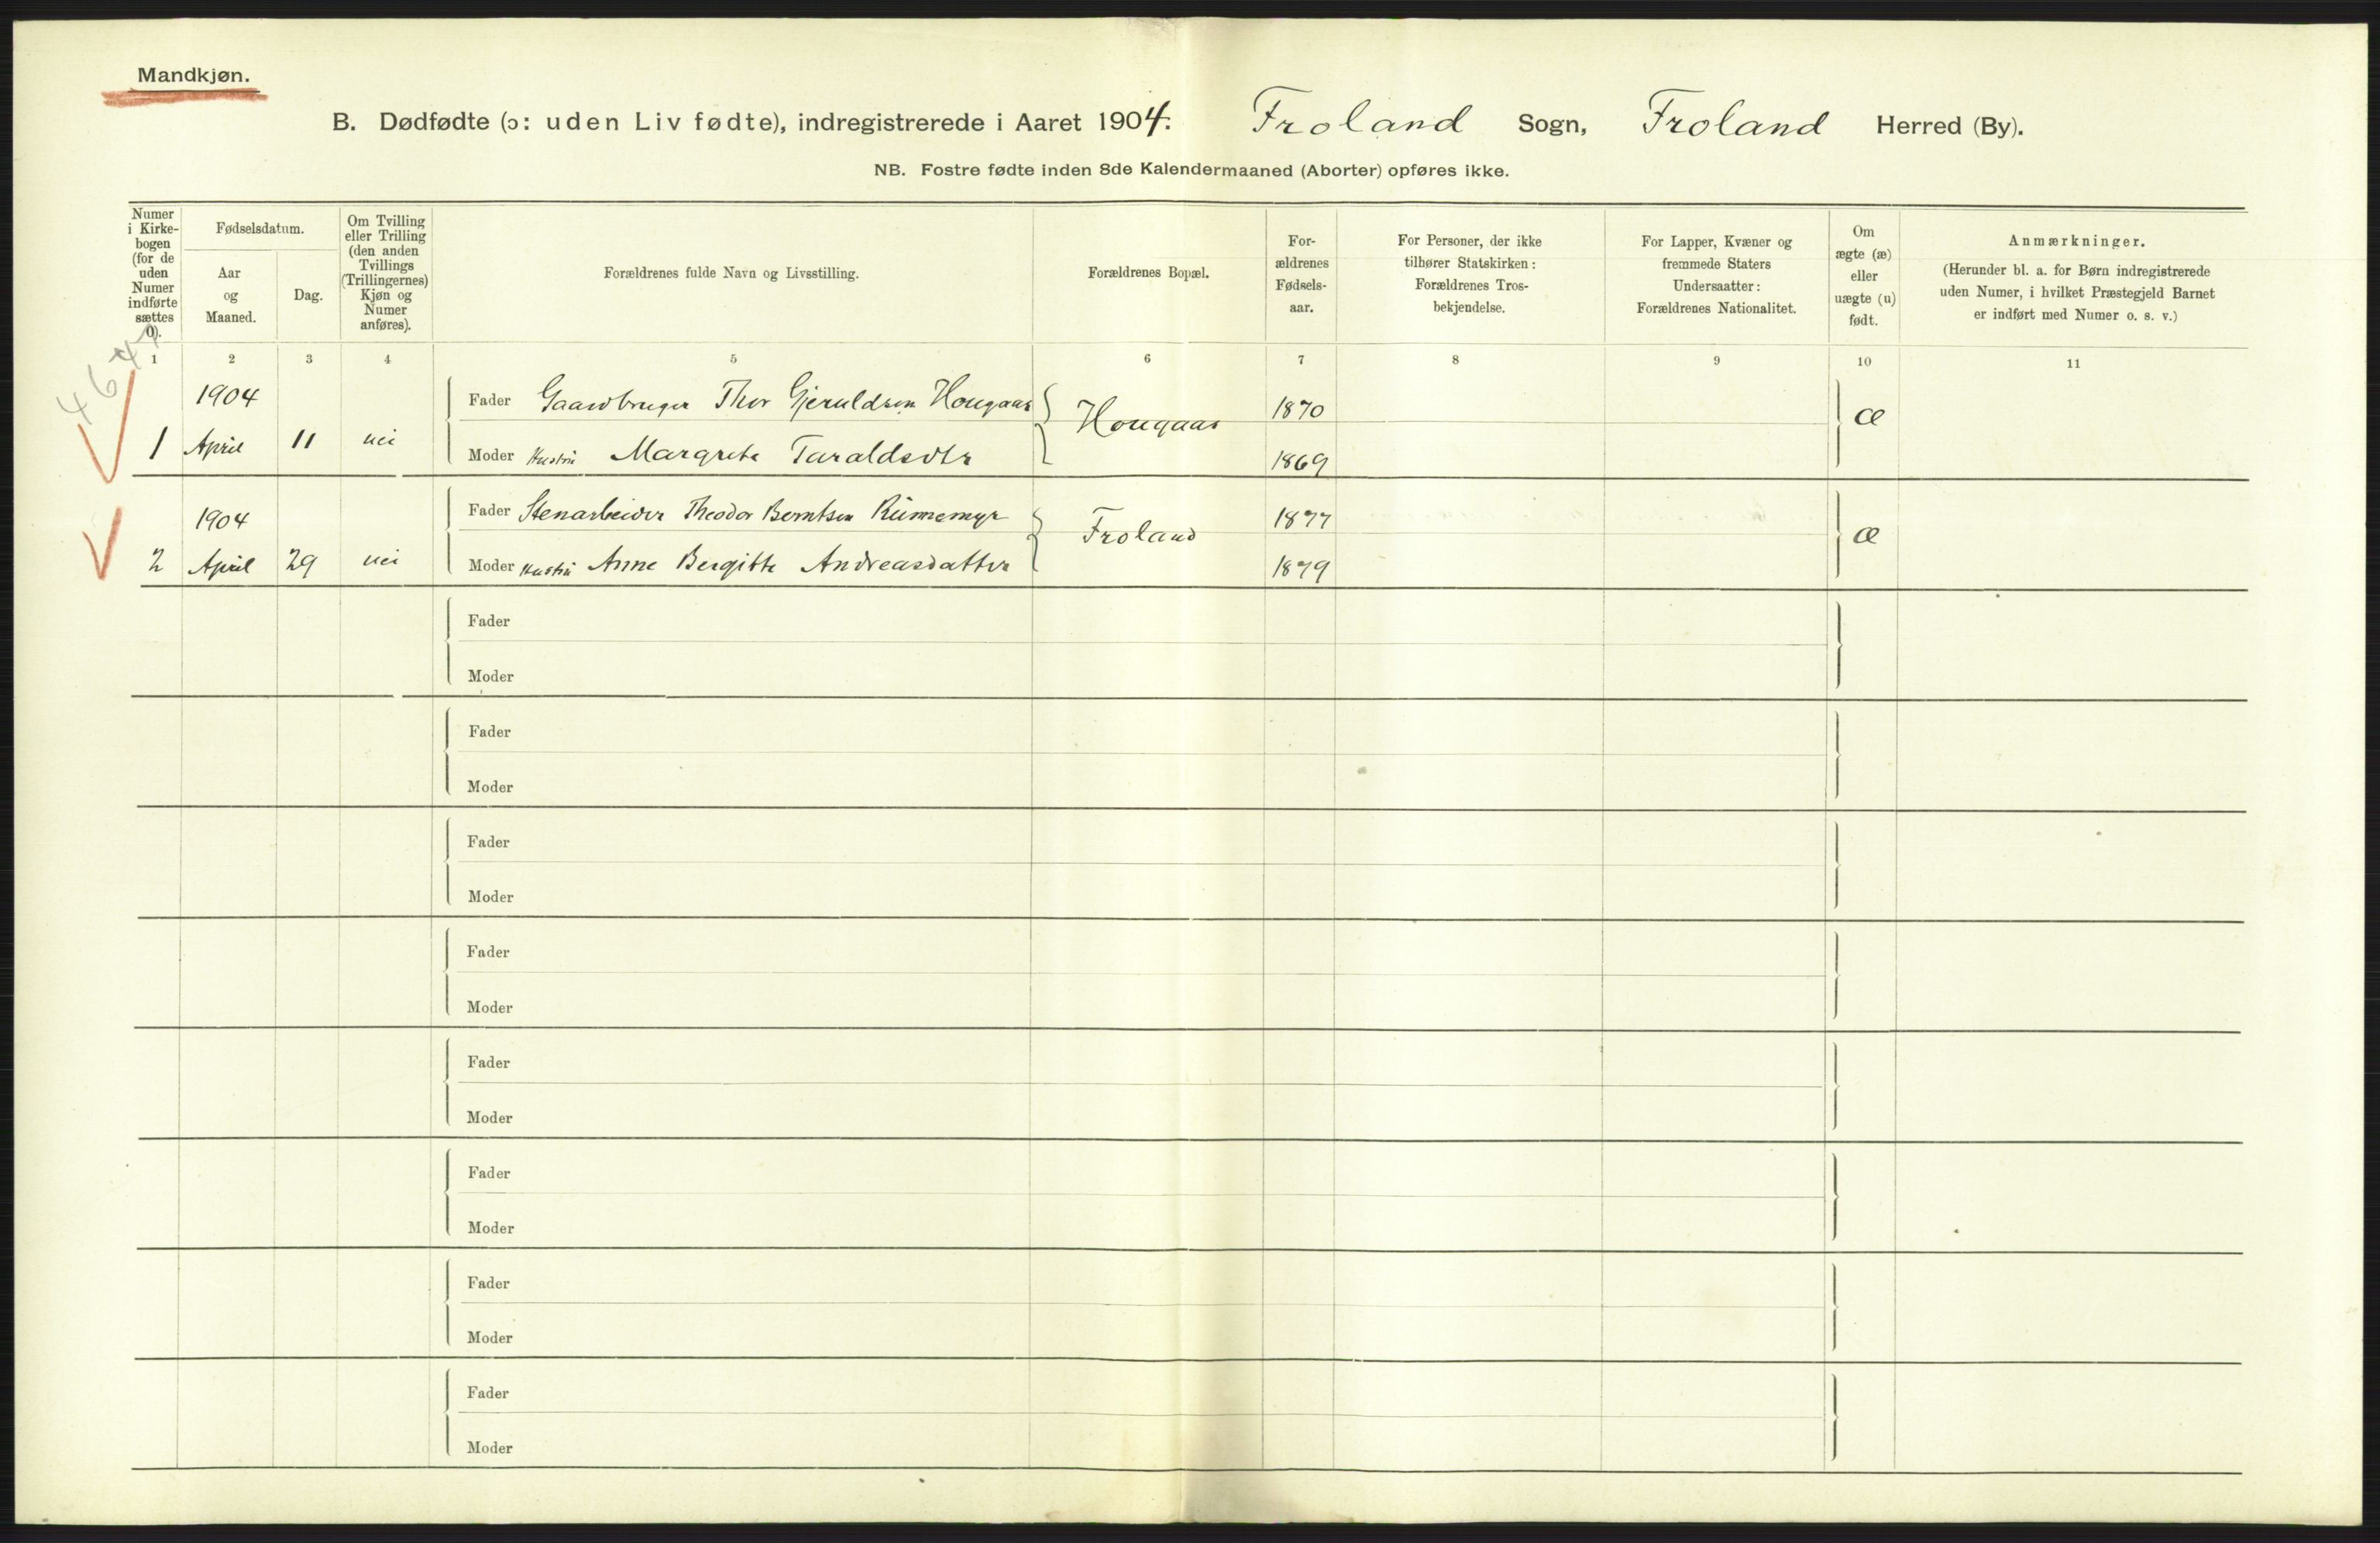 Mandkjøn.
B. Dødfødte (ɔ: uden Liv fødte), indregistrerede i Aaret 1904. Froland Sogn, Froland Herred (By).
NB. Fostre fødte inden 8de Kalendermaaned (Aborter) opføres ikke.
Numer
i Kirke-
bogen
(for de
uden
Numer
indførte
sættes
0).
Fødselsdatum.
Aar
og
Maaned.
Dag.
Om Tvilling
eller Trilling
(den anden
Tvillings
(Trillingernes)
Kjøn og
Numer
anføres).
Forældrenes fulde Navn og Livsstilling.
Forældrenes Bopæl.
For-
ældrenes
Fødsels-
aar.
For Personer, der ikke
tilhører Statskirken:
Forældrenes Tros-
bekjendelse.
For Lapper, Kvæner og
fremmede Staters
Undersaatter:
Forældrenes Nationalitet.
Om
ægte (æ)
eller
uægte (u)
født.
Anmærkninger.
(Herunder bl. a. for Børn indregistrerede
uden Numer, i hvilket Præstegjeld Barnet
er indført med Numer o. s. v.)
1 2 3 4 5 6 7 8 9 10 11
1904 Fader Gaardbruger Thor Gjeruldsen Hougaas Hougaas 1870 æ
1 April 11 nei Moder Hustru Margrete Taraldsdtr 1869
1904 Fader Stenarbeider Theodor Berntsen Froland 1877 æ
2 April 29 nei Moder Hustru Anne Bergitte Andreasdatter 1879
Fader
Moder
Fader
Moder
Fader
Moder
Fader
Moder
Fader
Moder
Fader
Moder
Fader
Moder
Fader
Moder